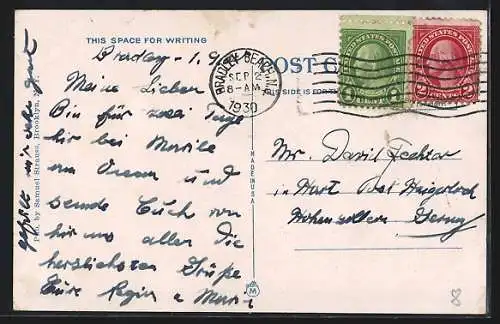 THIS SPACE FOR WRITING
POST C
THIS SIDE IS FOR TH
BRADLEY BEACH, N.J.
SEP 2
8-AM
1930
UNITED STATES POSTAGE
1 CENT 1
UNITED STATES POSTAGE
2 CENTS 2
Bradley - 1. 9
Meine Lieben
Bin für zwei Tage
hier bei
am Ocean und
sende Euch von
hir aus allen die
herzlichsten Grüße
Eure Regin e
gefällt mir sehr gut
Pub. by Samuel Strauss, Brooklyn, N. Y.
MADE IN U.S.A.
M
Mr. David
in Hart Post Haigerloch
Hohenzollern Germy
8